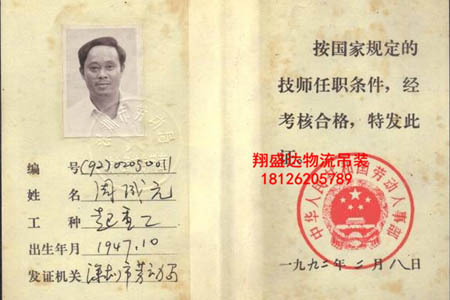 编 号(92)02050011
姓 名 周成元
工 种 起重工
出生年月 1947.10
发证机关 深圳市劳动局
按国家规定的
技师任职条件，经
考核合格，特发此
证
翔盛达物流吊装
18126205789
中华人民共和国劳动人事部
一九九二年二月八日